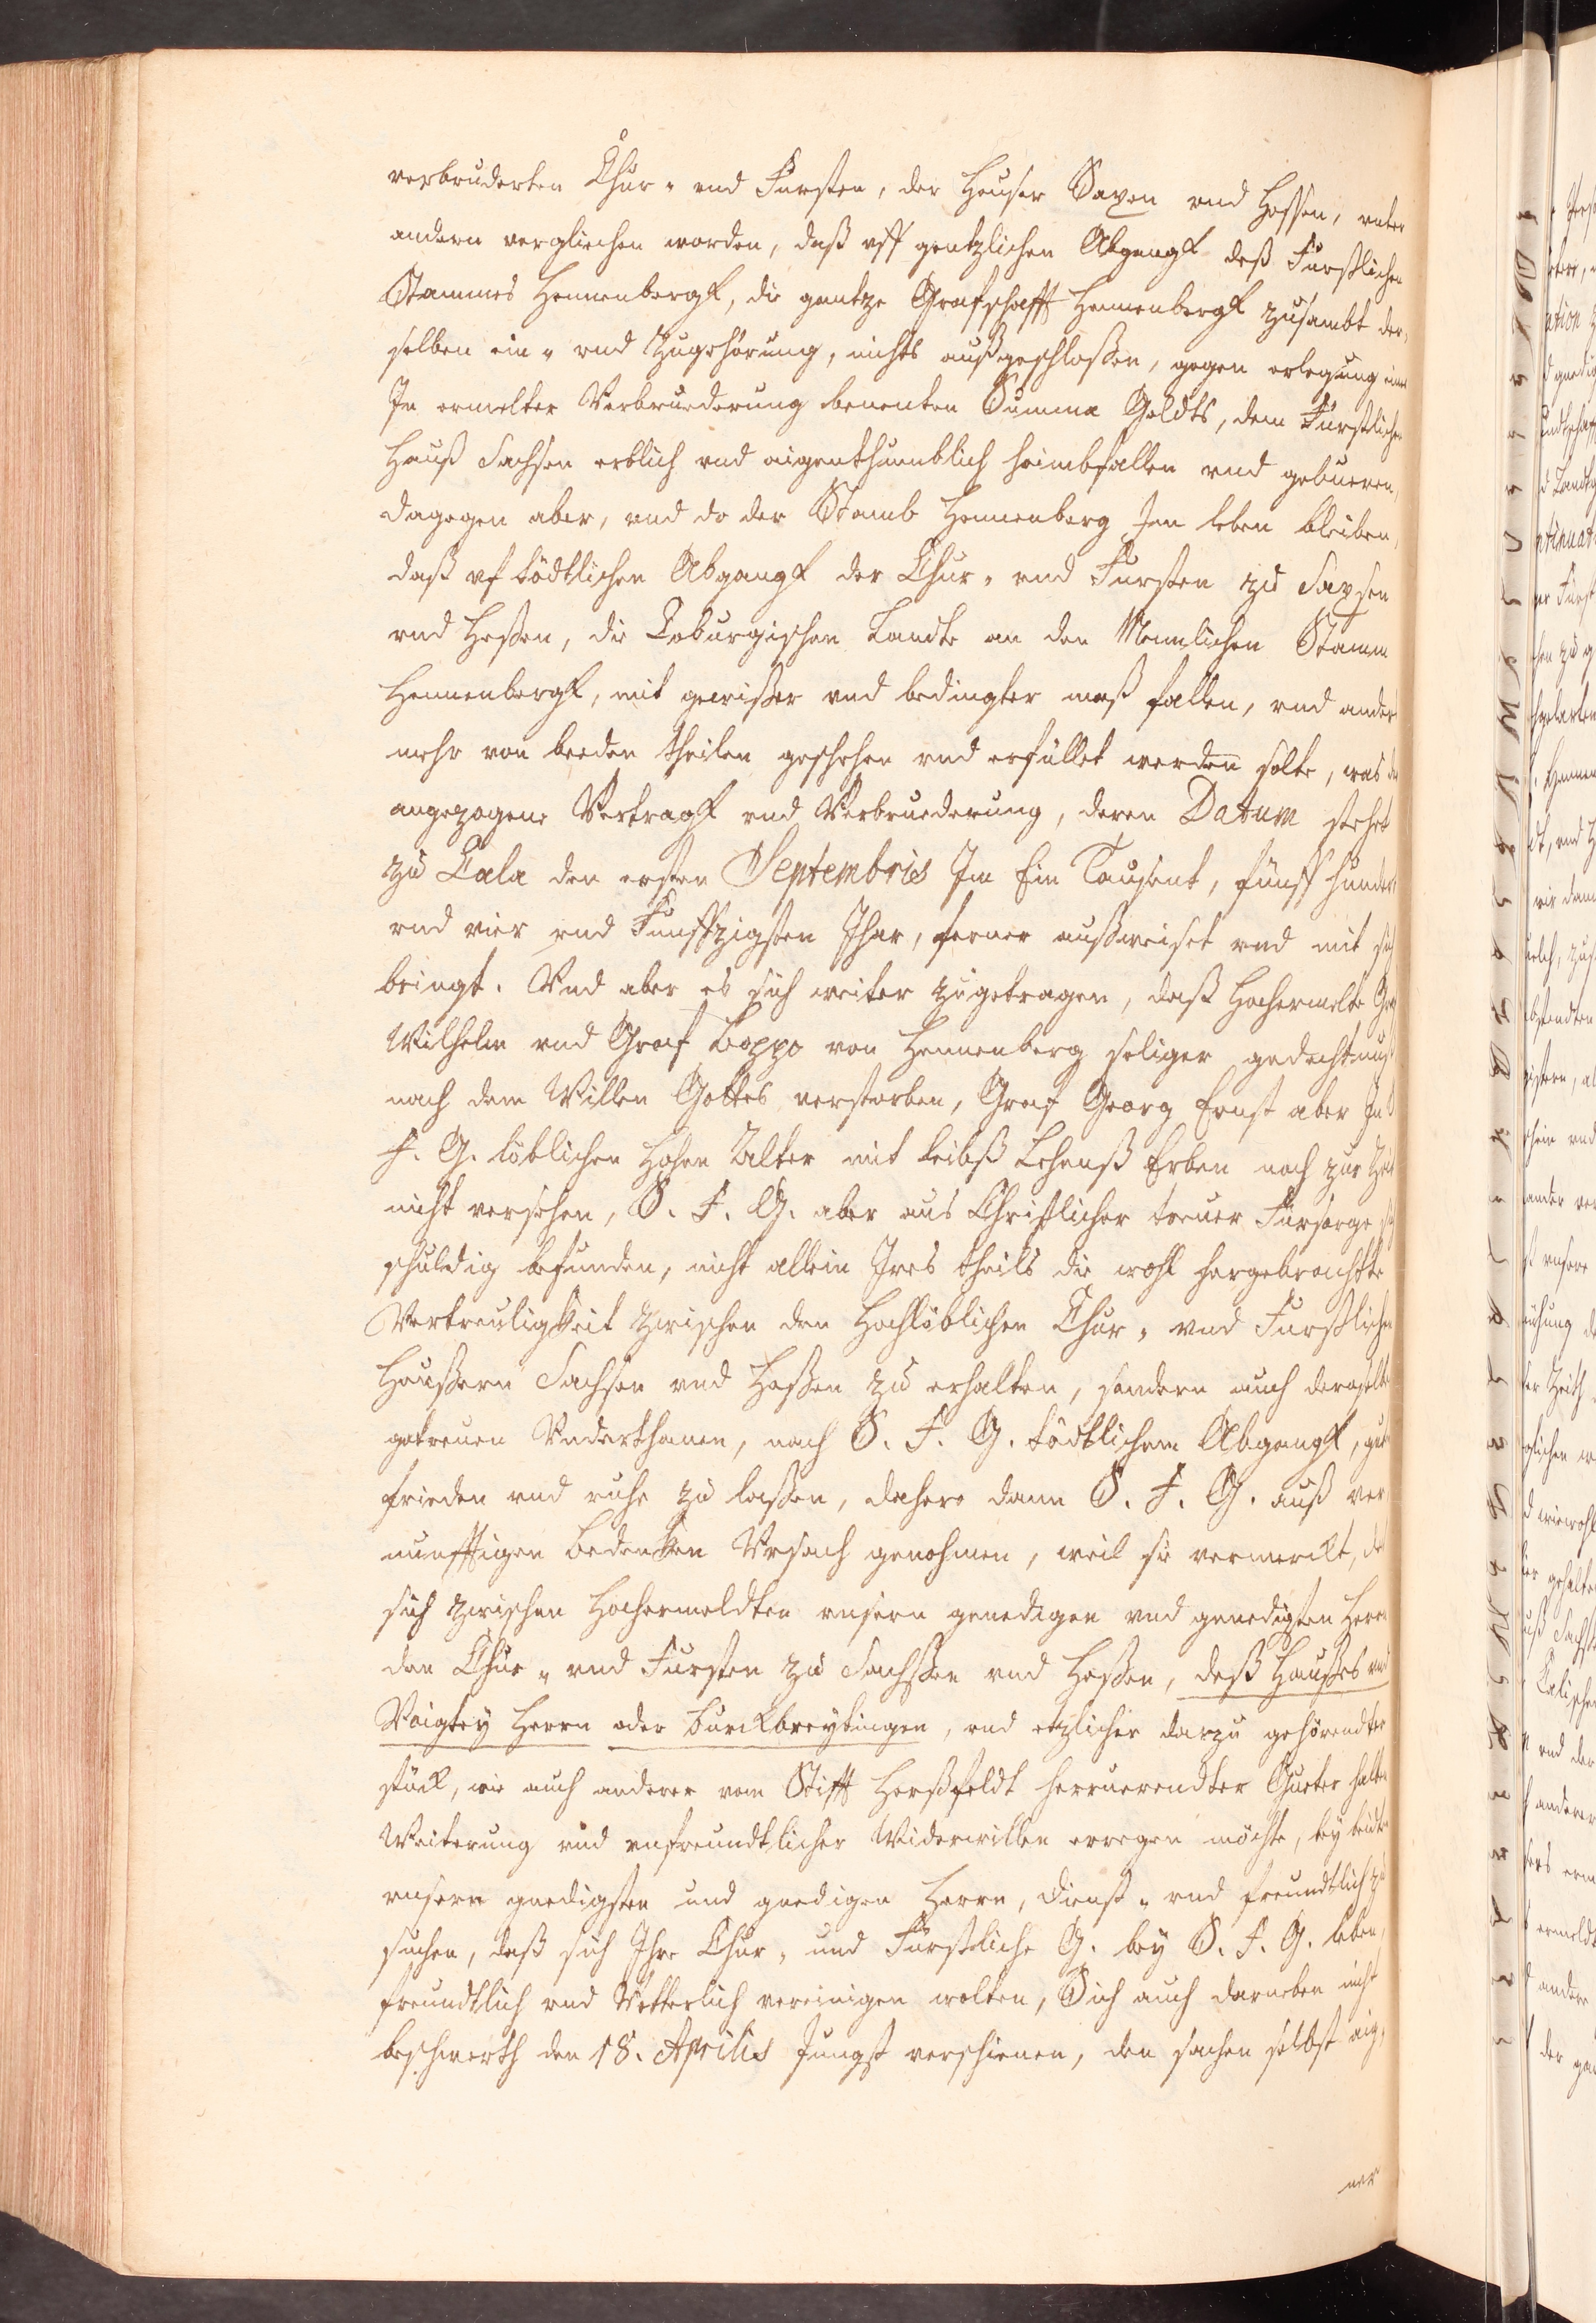 verbruderten Chur- vnd Fursten, der Heuser Saxen vnd Hessen, vnter
andern vergliechen worden, daß vff gentzlichen Abgangk deß Furstlichen
Stammes Hennenbergk, die gantze Grafschafft Hennenbergk zusambt der-
selben ein- vnd Zugehörung, nichts außgeschloßen, gegen erlegung einer
In ermelter Verbruederung benenten Summa Geldts, dem Furstlichen
Hauß Sachsen erblich vnd aigenthumblich heimbfallen vnd gebueren,
dagegen aber, vnd do der Stamb Hennenberg Im leben bleiben,
daß vf tödtlichen Abgangk der Chur- vnd Fursten zu Saxsen
vnd Heßen, die Coburgischen Landte an den Mennlichen Stamm
Hennenbergk, mit gewißer vnd bedingter maß fallen, vnd anders
mehr von beeden theilen geschehen vnd erfüllet werden solte, was der
angezogene Vertragk vnd Verbruederung, deren Datum stehet
zu Cala den ersten Septembris Im Ein Tausent, fünff hundert
vnd vier vnd Funffzigsten Jhar, ferner außweiset vnd mit sich
bringt. Vnd aber es sich weiter zugetragen, daß Hochermelte Graf
Wilhelm vnd Graf Boppo von Hennenberg seliger gedechtnuß
nach dem Willen Gottes verstorben, Graf Georg Ernst aber In
F. G. löblichen Hohen Alter mit leibß Lehenß Erben noch zur Zeit
nicht versehen, S. F. G. aber aus Christlicher treuer Fursorge sich
schuldig befunden, nicht allein Ires theils die wohl hergebrachte
Vertreuligkeit zwischen den Hochlöblichen Chur- vnd Furstlichen
Heußern Sachsen vnd Heßen zu erhalten, sondern auch deroselben
getreuen Vnderthanen, nach S. F. G. tödtlichem Abgangk, gute
frieden vnd ruhe zu laßen, dahero dann S. F. G. auß ver-
nunfftigen bedenken Vrsach genohmen, weil sie vermerckt, das
sich zwischen Hochermeldten vnsern genedigen vnd genedigsten Herrn
den Chur- vnd Fursten zu Sachßen vnd Heßen, deß Haußes vnd
Voigtey Herrn oder Burckbreytingen, vnd etzlicher darzu gehörendter
stück, wie auch anderer vom Stifft Herßfeldt herruerendter Gueter halben
Weiterung vnd vnfreundtlicher Widerwillen erregen möchte, bey beiden
vnsern gnedigsten und gnedigen Herrn, dienst- vnd freundtlich zu
suchen, daß sich Ihre Chur- und Fürstliche G. bey S. F. G. leben,
freundtlich vnd Vetterlich vereinigen wolten, Sich auch darneben nicht
beschwerth den 18. Aprilis Jungst verschienen, den sachen selbst aig-